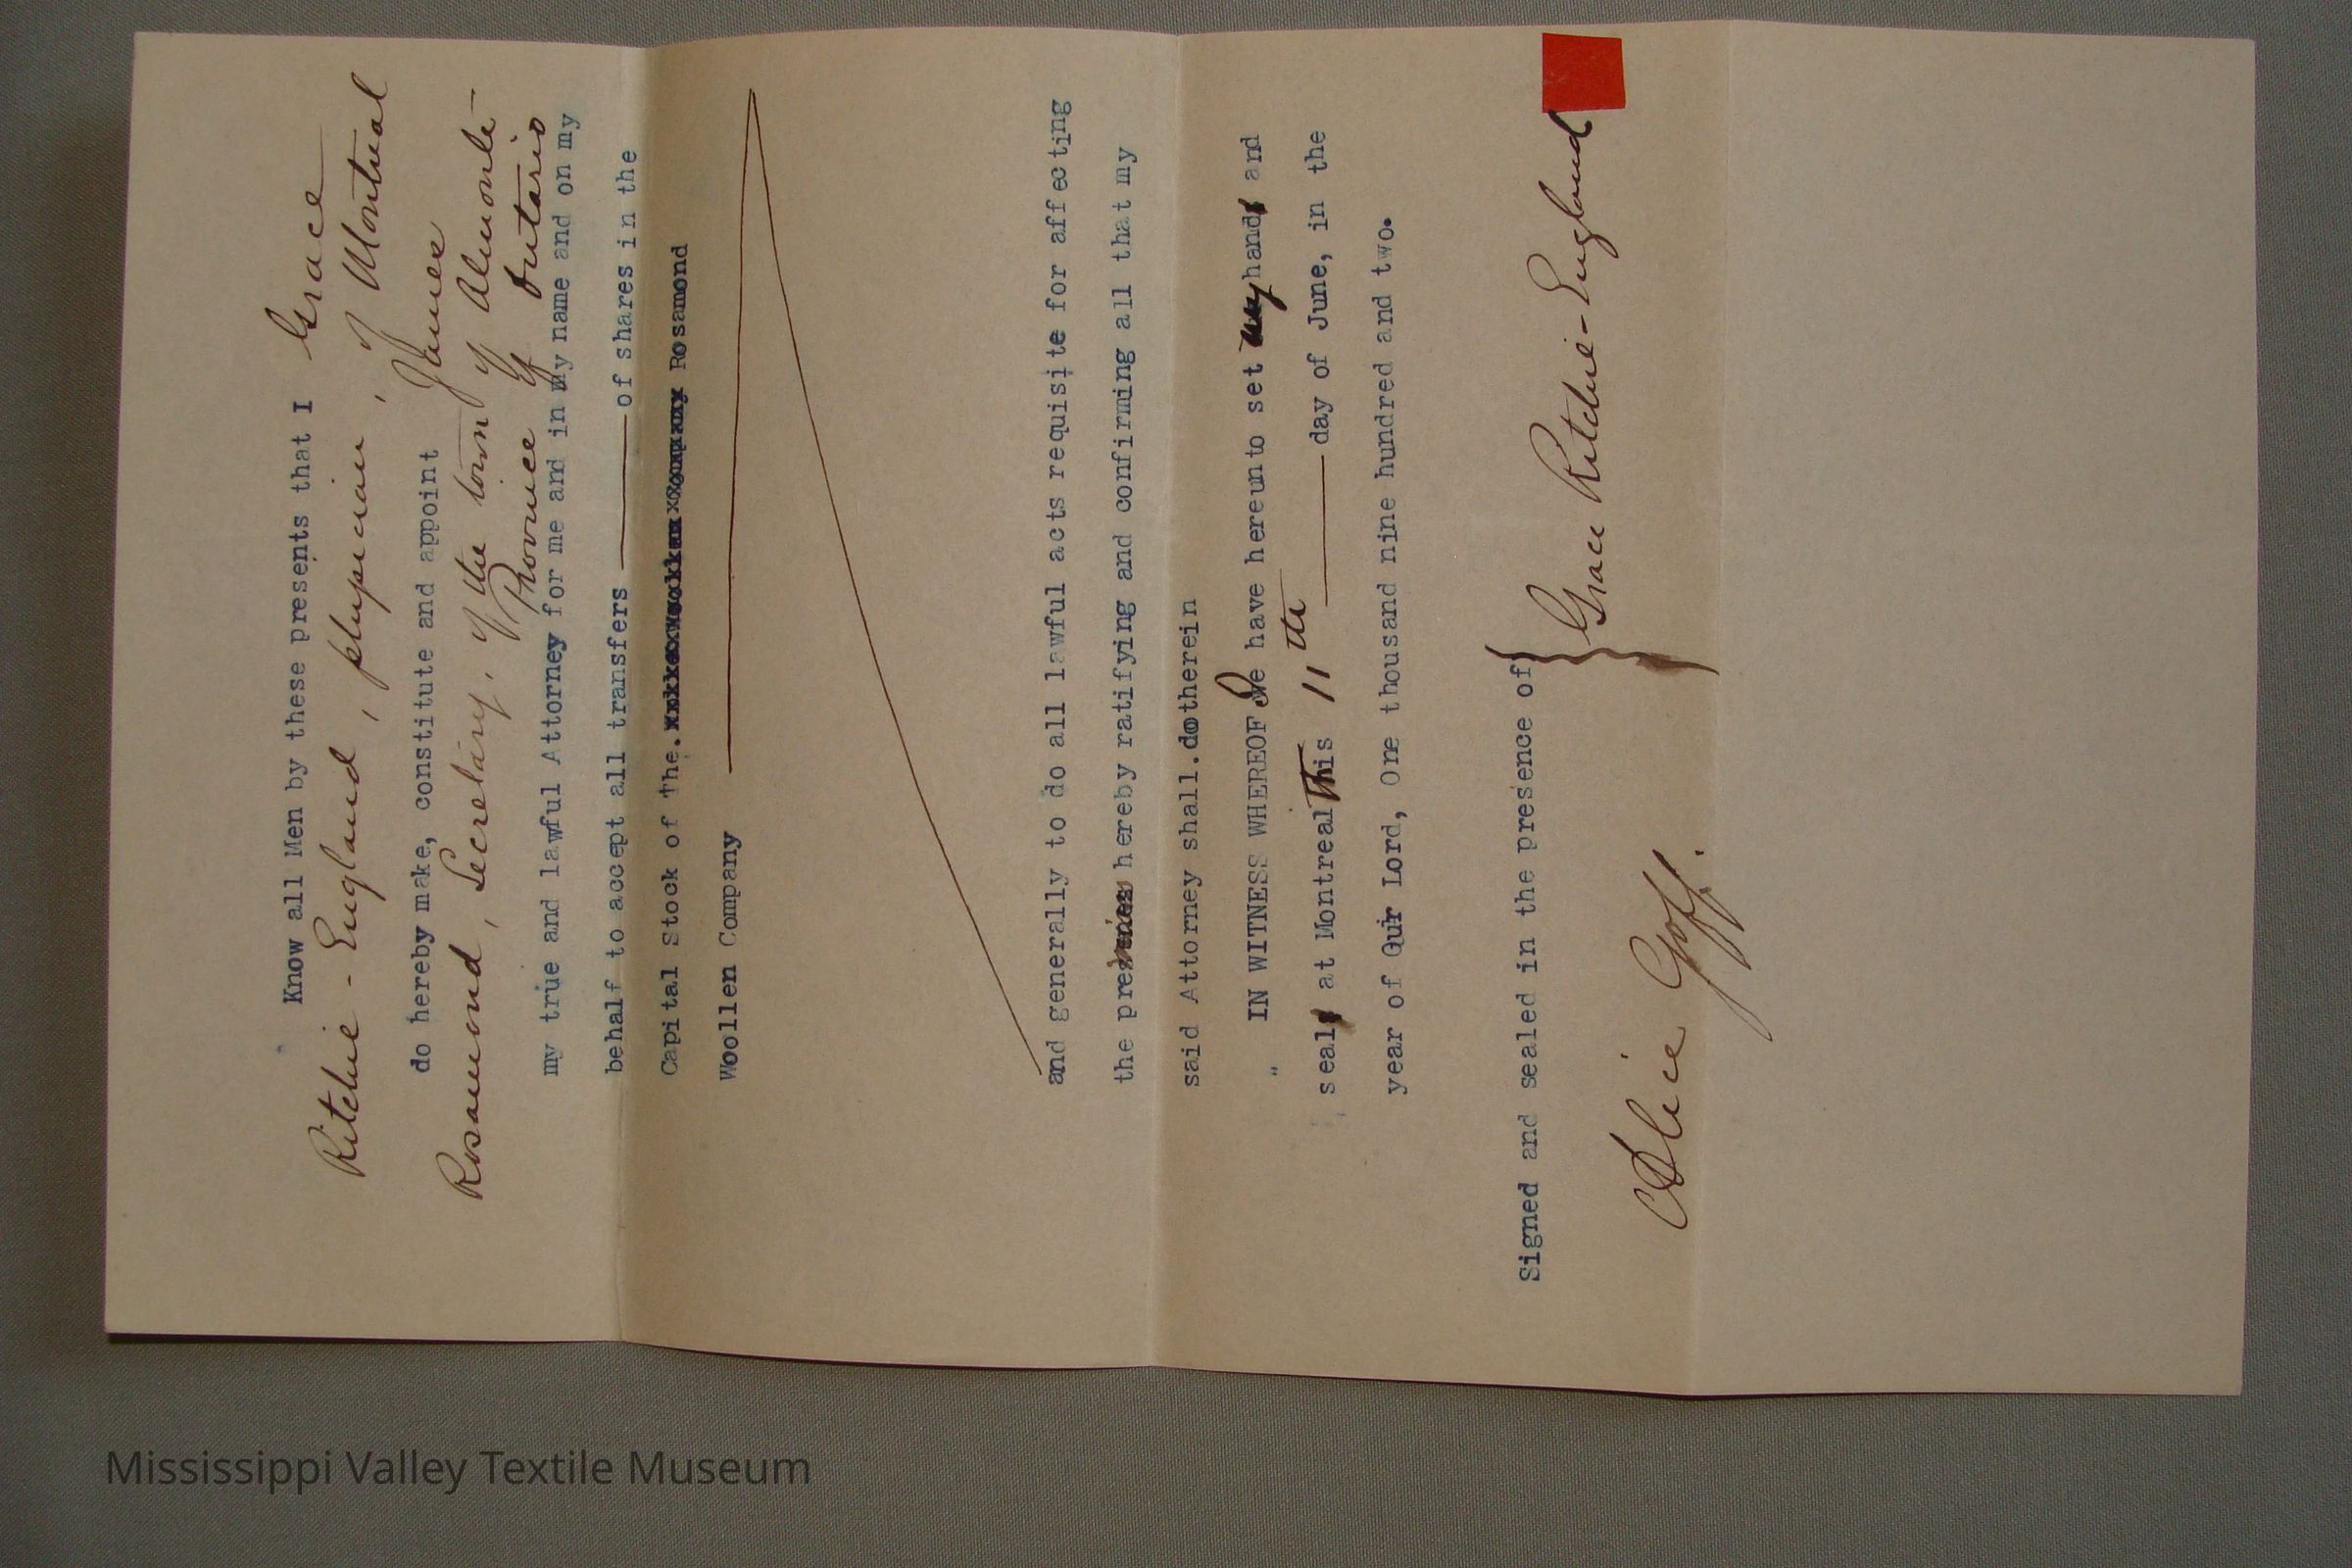 Know all Men by these presents that I Grace
Ritchie - England, physician, of Montreal
do hereby make, constitute and appoint James
Rosamond, Secretary, of the town of Almonte
Province of Ontario
my true and lawful Attorney for me and in my name and on my
behalf to accept all transfers of shares in the
Capital Stock of The. Rosamond
Woollen Company
and generally to do all lawful acts requisite for affecting
the hereby ratifying and confirming all that my
said Attorney shall.do therein
IN WITNESS WHEREOF I have hereunto set my hand and
seal at Montreal This 11th day of June, in the
year of Our Lord, One thousand nine hundred and two.
Signed and sealed in the presence of
Grace Ritchie-England
Alice Goff.
Mississippi Valley Textile Museum